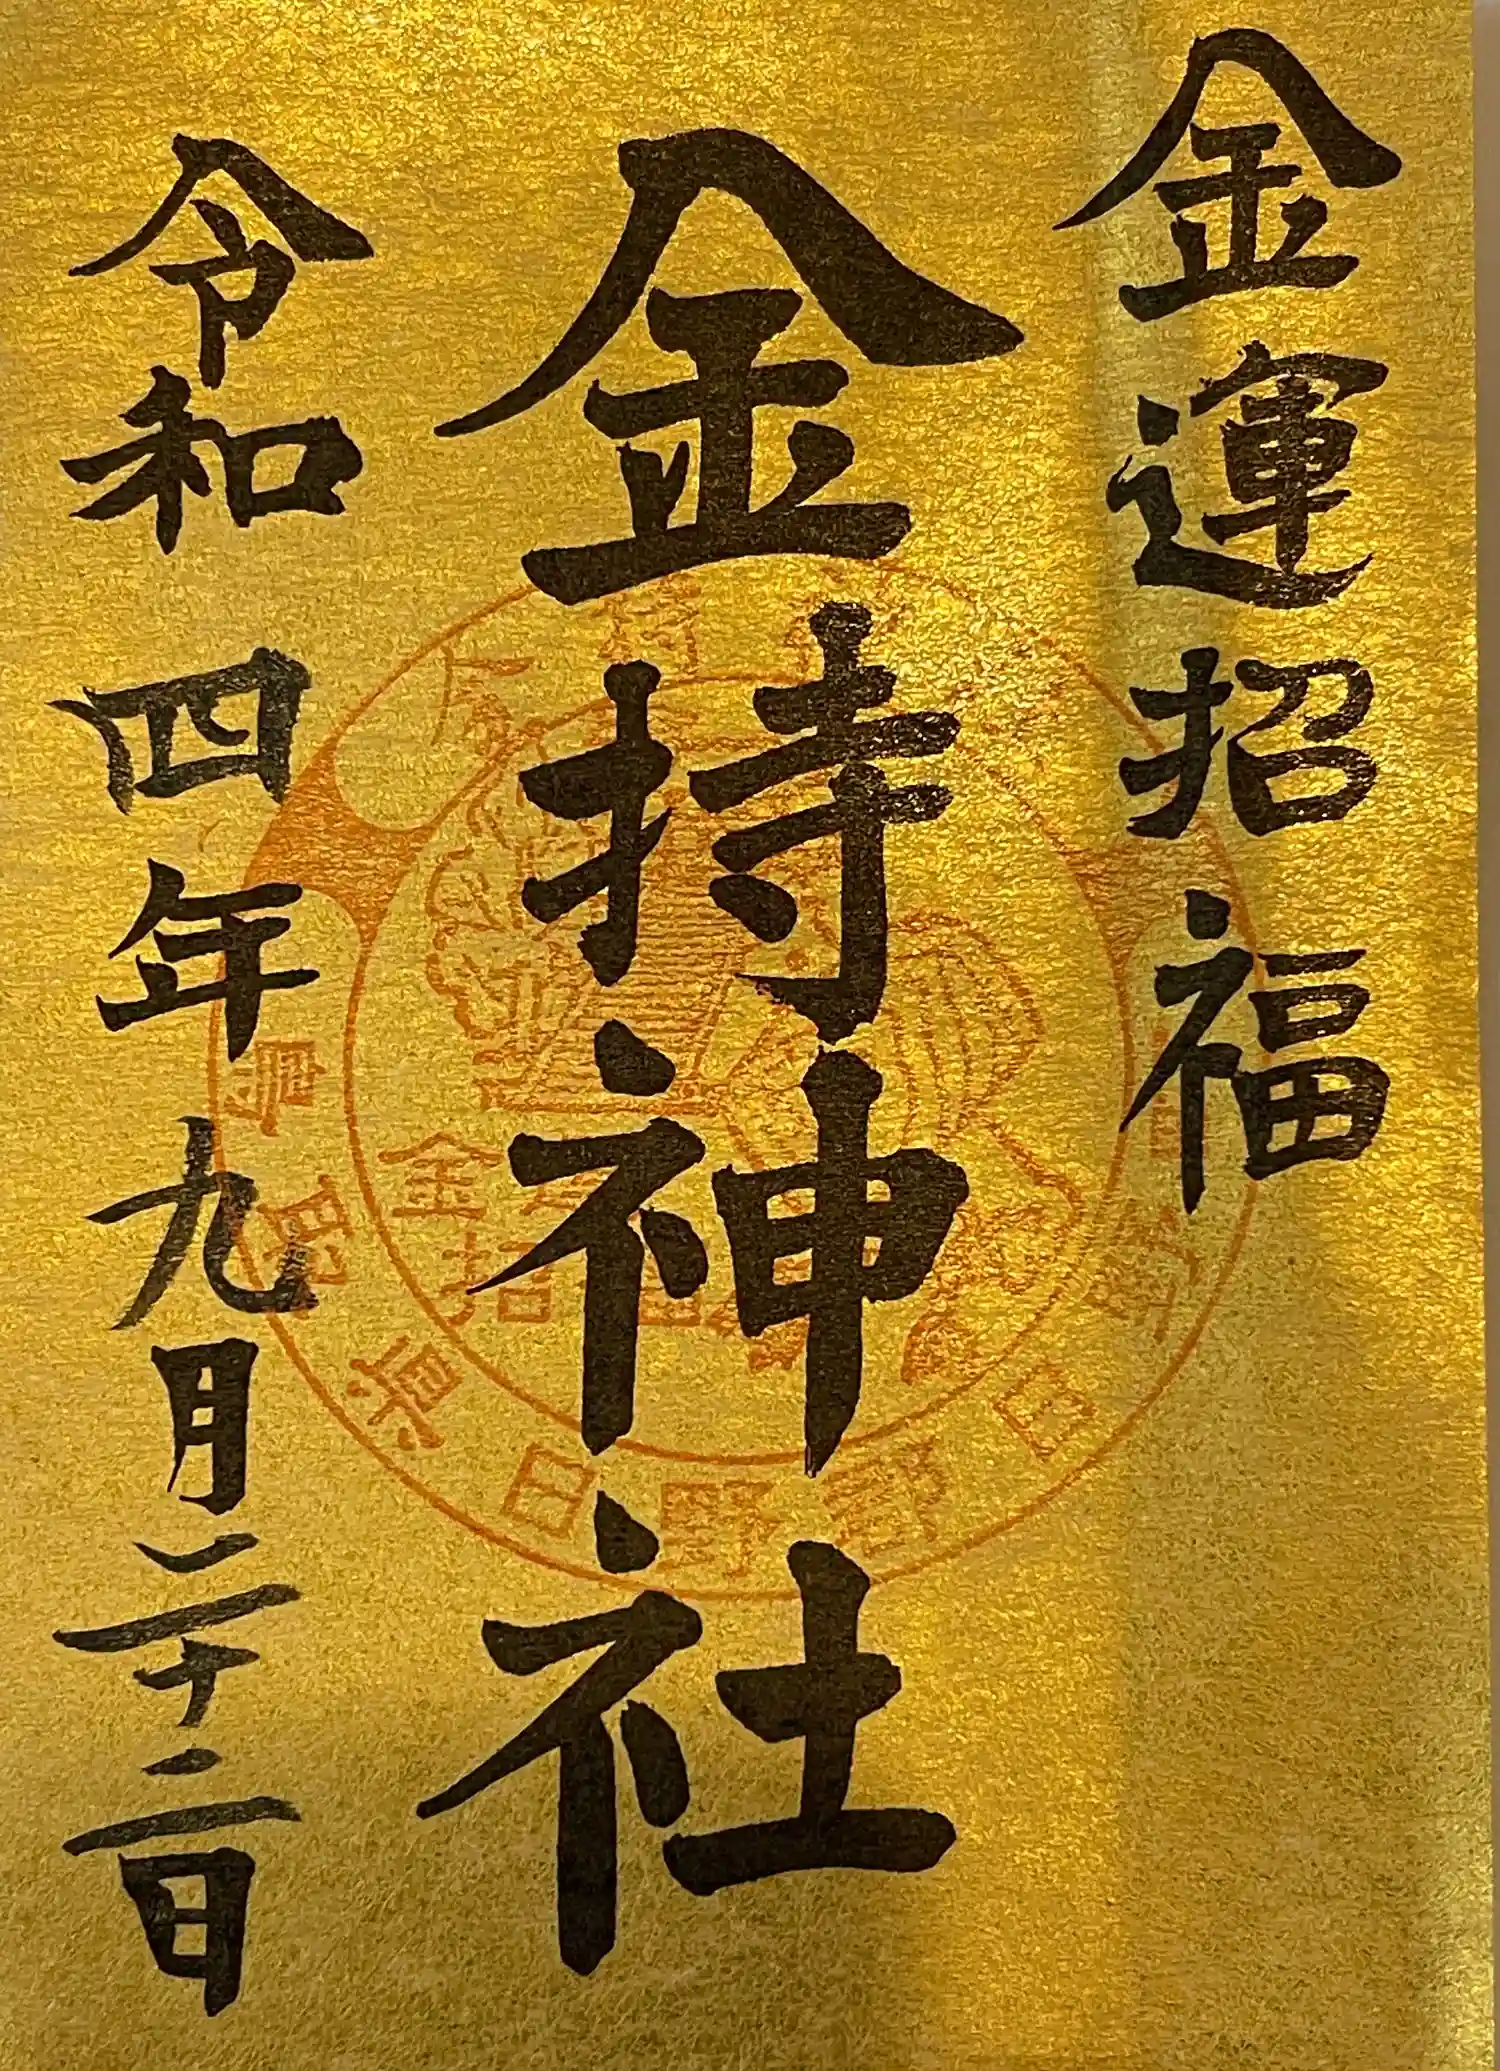 金運招福
金持神社
令和四年九月二十二日
鳥取県日野郡日野
金持